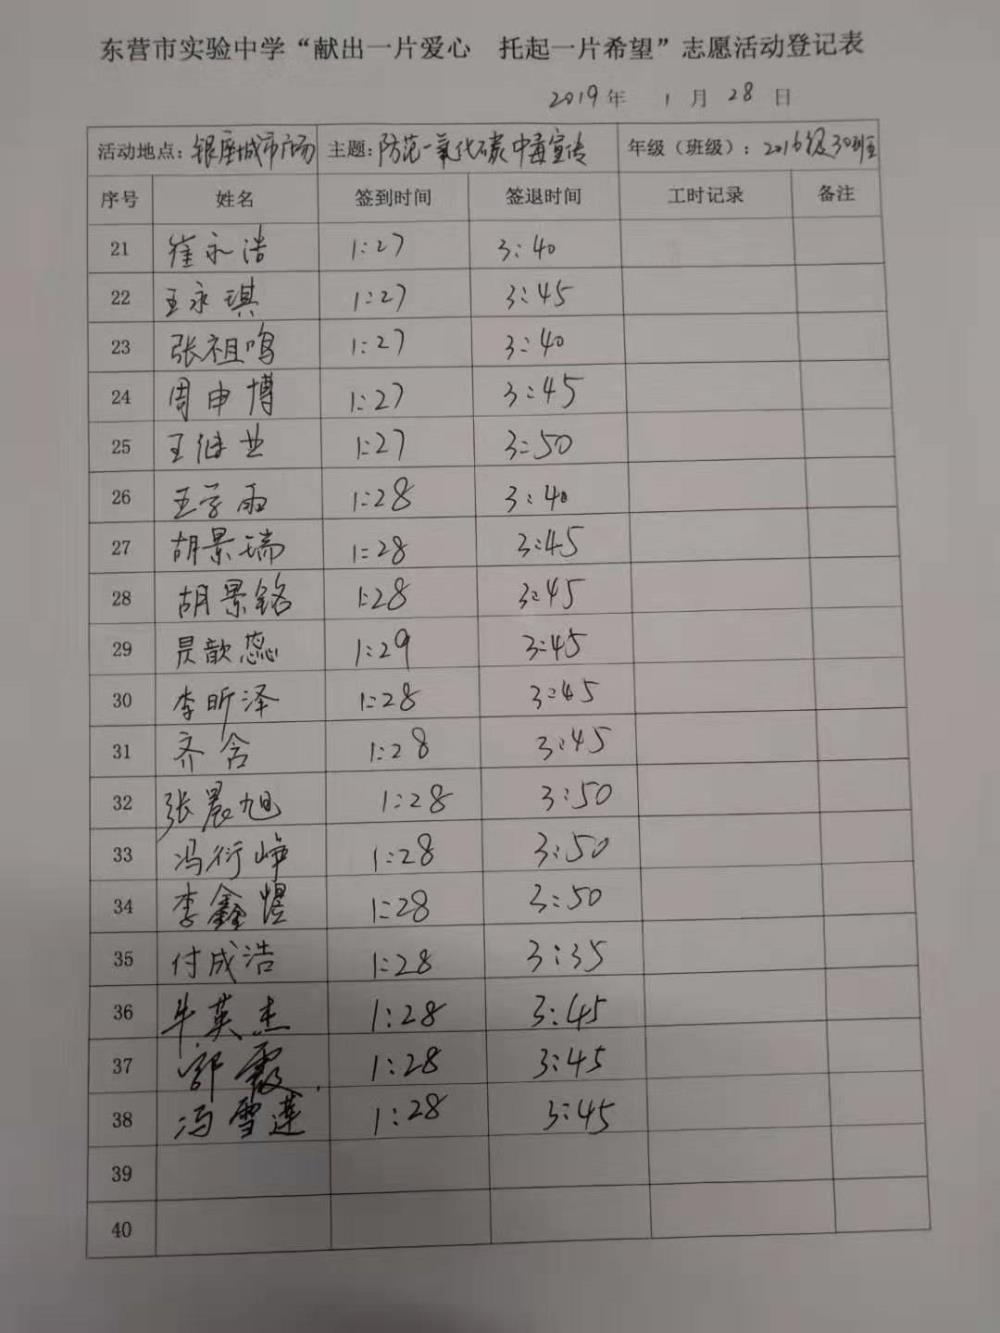 东营市实验中学“献出一片爱心 托起一片希望”志愿活动登记表
2019年 1月 28日
活动地点：银座城市广场 主题：防范一氧化碳中毒宣传 年级（班级）：2016级30班
序号 姓名 签到时间 签退时间 工时记录 备注
21 崔永浩 1:27 3:40
22 王永琪 1:27 3:45
23 张祖鸣 1:27 3:40
24 周申博 1:27 3:45
25 王继业 1:27 3:50
26 王子雨 1:28 3:40
27 胡景瑞 1:28 3:45
28 胡景铭 1:28 3:45
29 歆蕊 1:29 3:45
30 李昕泽 1:28 3:45
31 齐含 1:28 3:45
32 张晨旭 1:28 3:50
33 冯衍峥 1:28 3:50
34 李鑫煜 1:28 3:50
35 付成浩 1:28 3:35
36 牛英杰 1:28 3:45
37 郭霞 1:28 3:45
38 冯雪莲 1:28 3:45
39
40